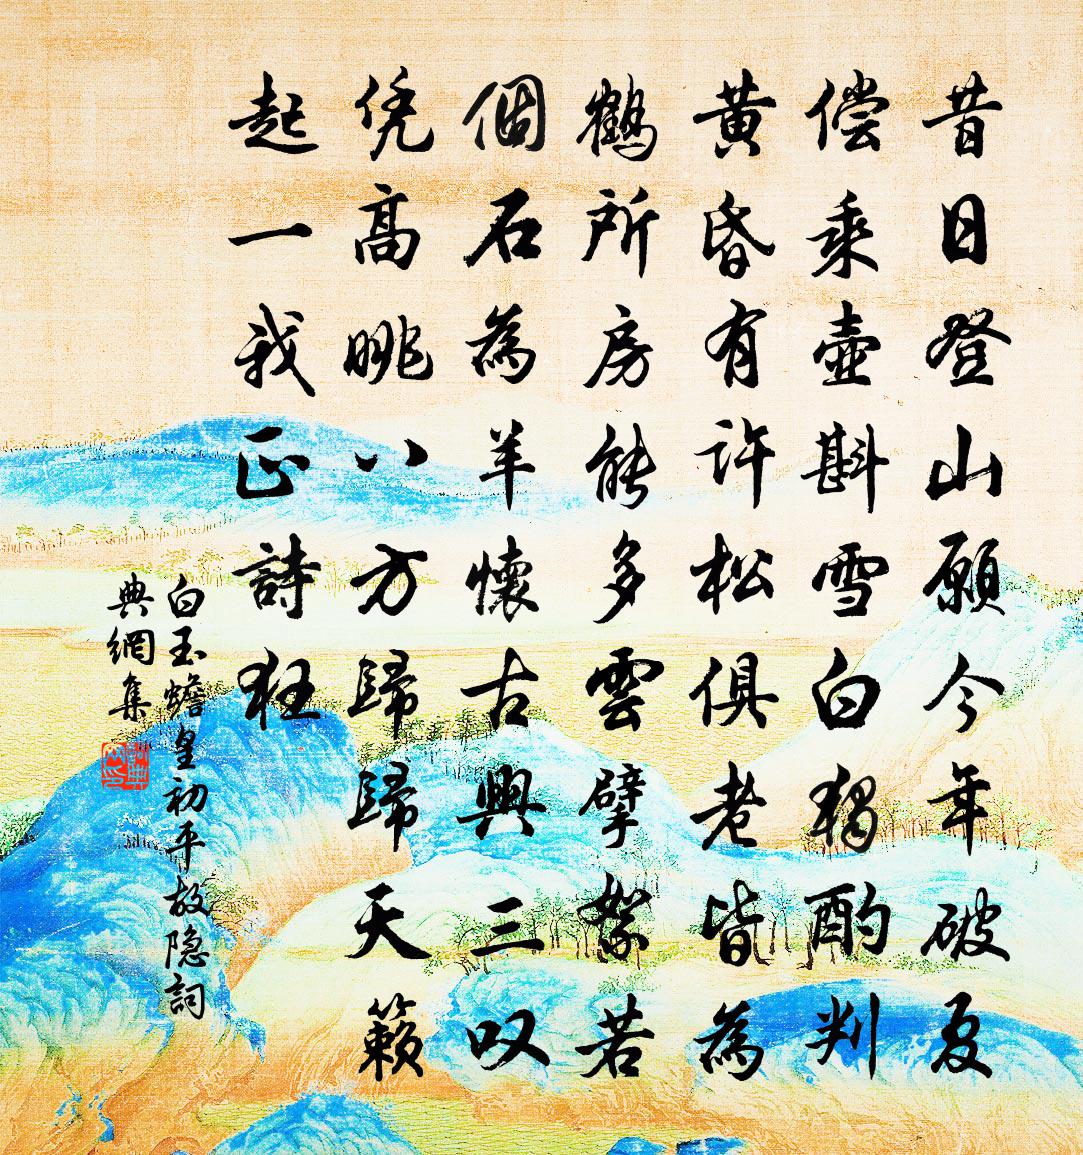 昔日登山願今年破夏
償乘壺斟雪白獨酌判
黃昏有許松俱老皆為
鶴所房能多雲擘絮若
個石為羊懷古興三叹
凭高眺八方歸歸天籟
起一我正詩狂
白玉蟾皇初平故隐詞
典網集